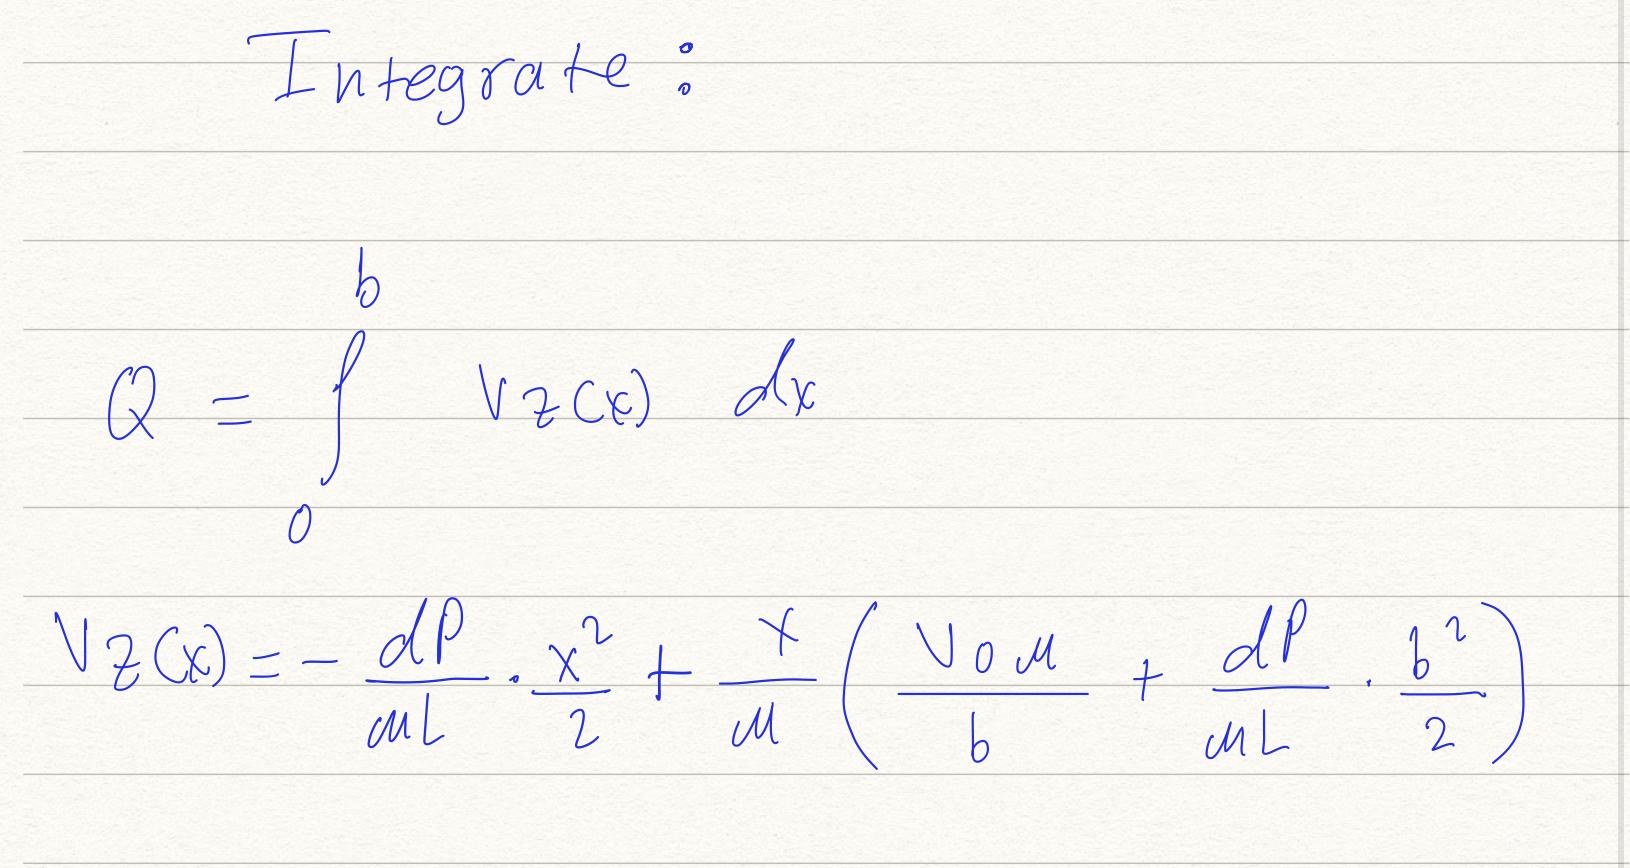 Integrate:
Q = ∫₀ᵇ Vz(x) dx
Vz(x) = - dP/μL · x²/2 + x/μ ( V₀μ/b + dP/μL · b²/2 )